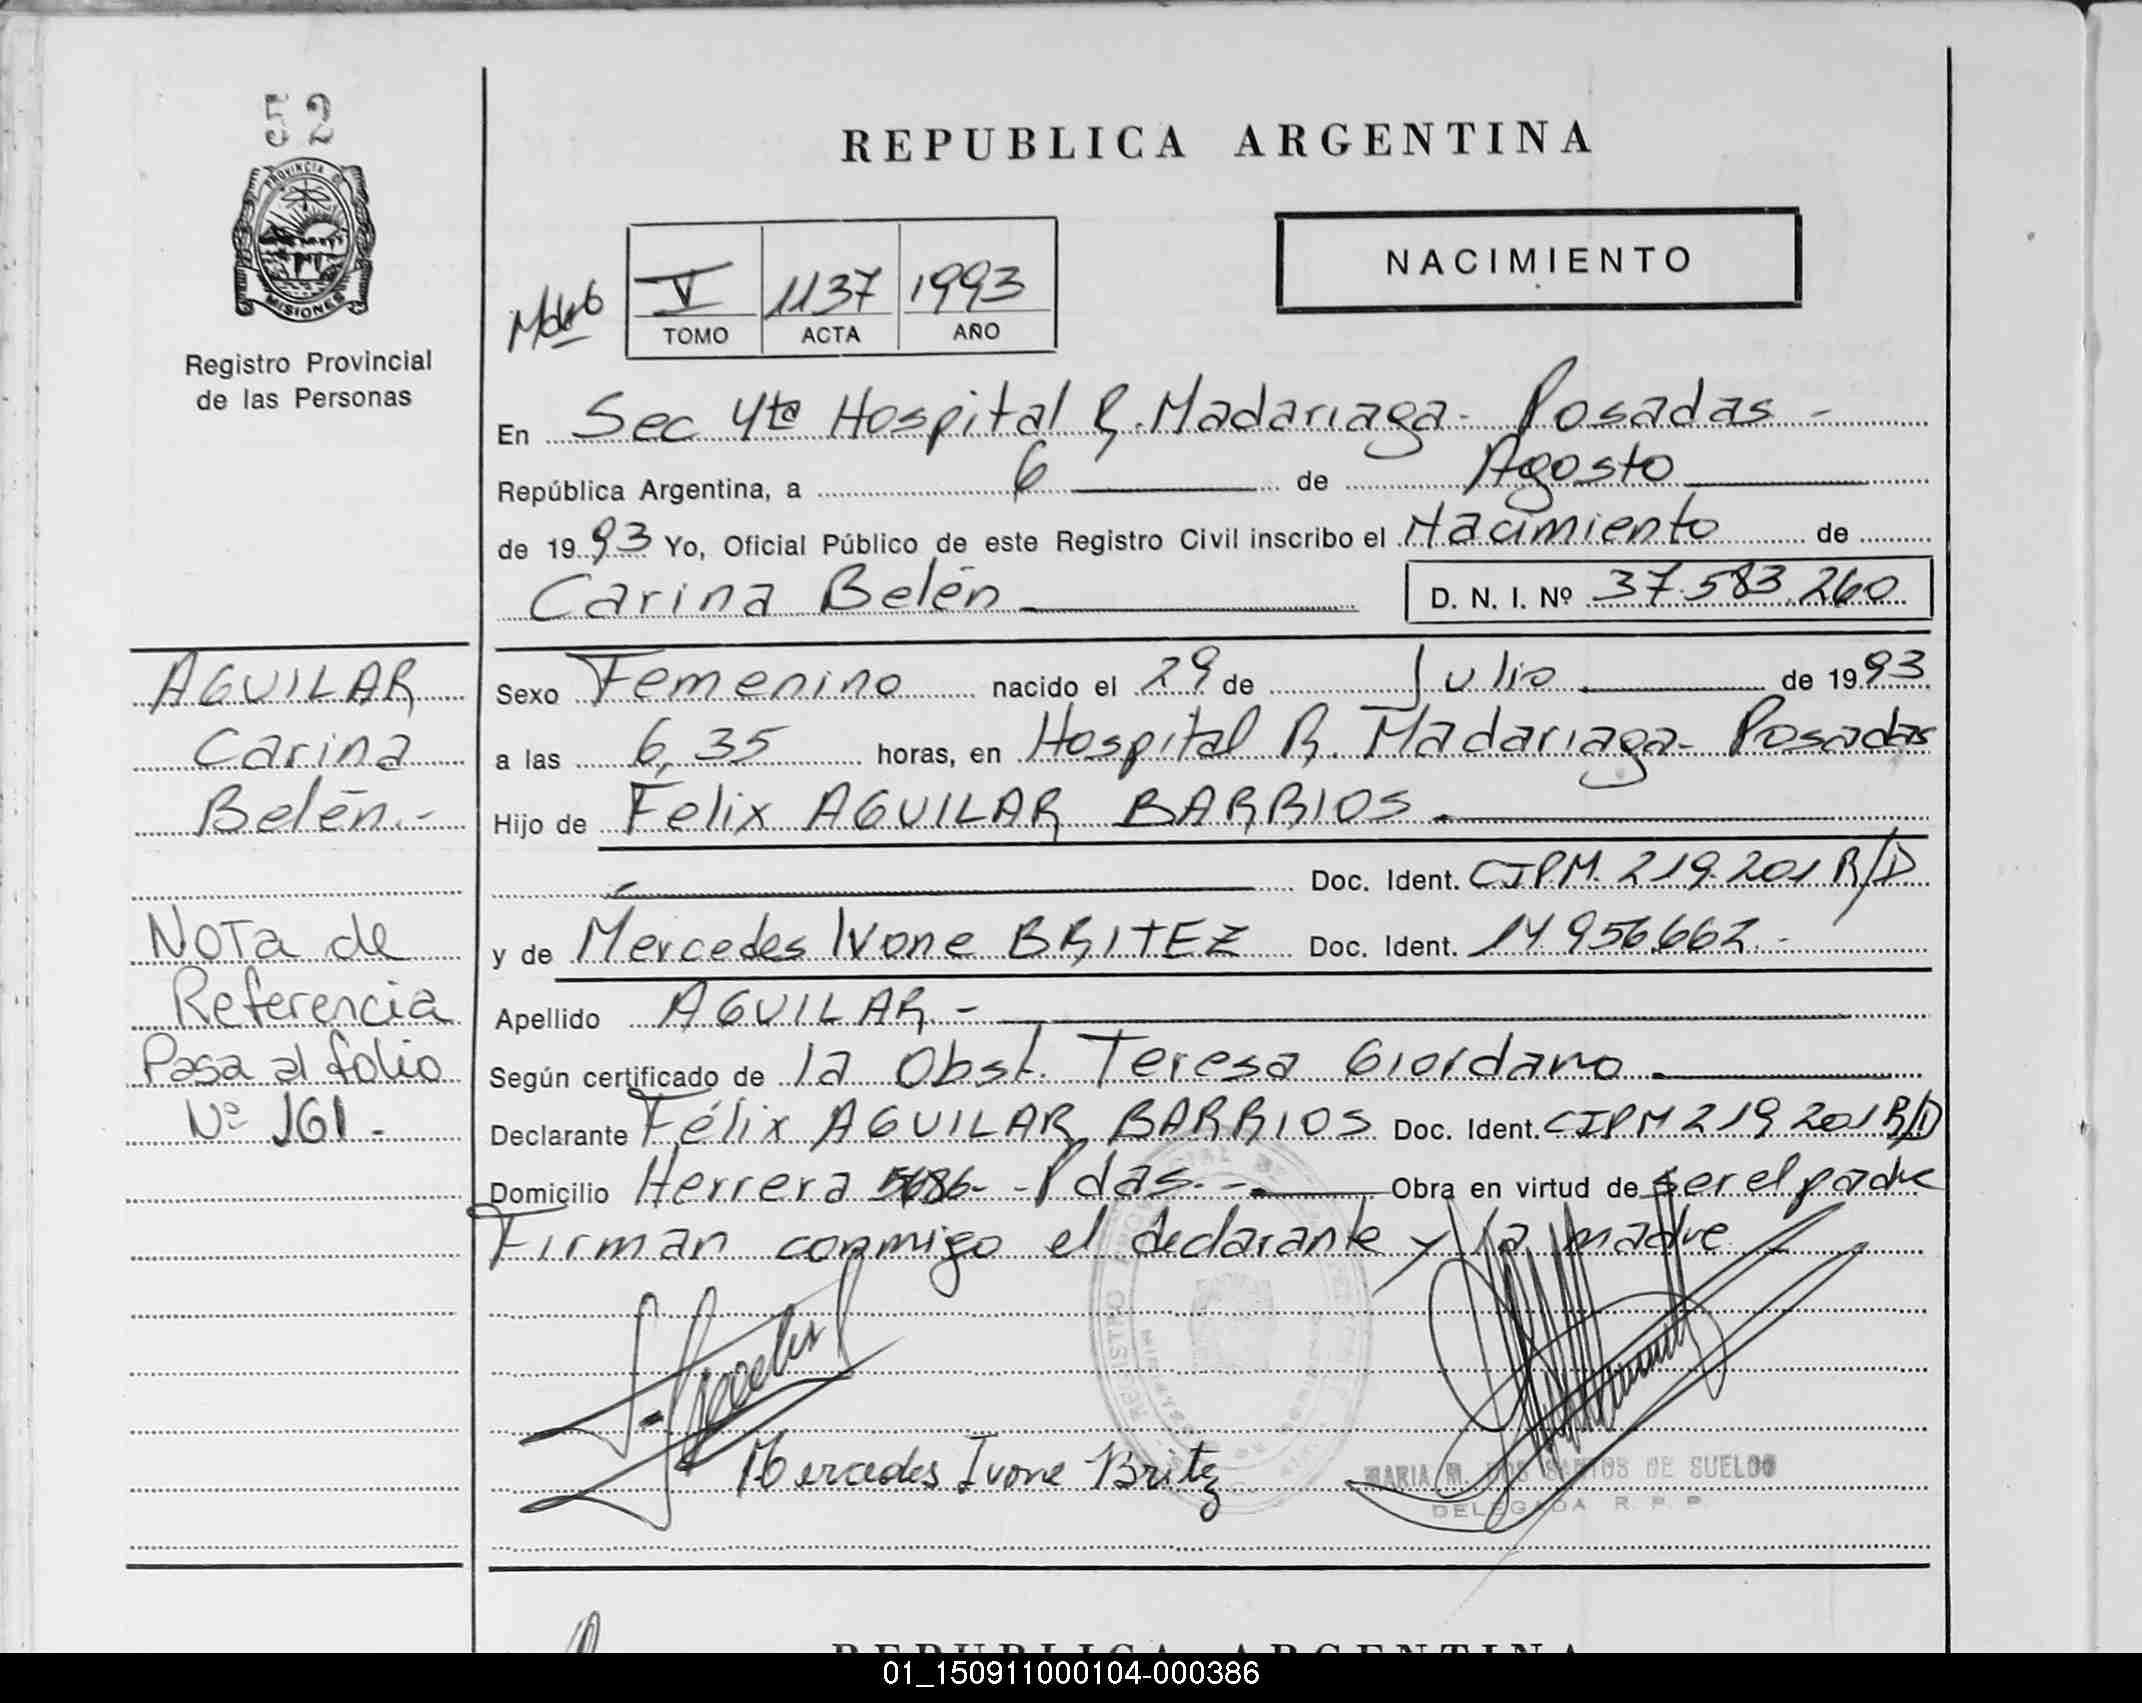 52
PROVINCIA DE
MISIONES
Registro Provincial
de las Personas
REPUBLICA ARGENTINA
NACIMIENTO
V 1137 1993
TOMO ACTA AÑO
En Sec 4ta Hospital R. Madariaga - Posadas -
República Argentina, a 6 de Agosto
de 1993 Yo, Oficial Público de este Registro Civil inscribo el Nacimiento de
Carina Belén D. N. I. Nº 37.583.260
AGUILAR
Carina
Belén.-
Nota de
Referencia
Pasa al folio
Nº 161.-
Sexo Femenino nacido el 29 de Julio de 1993
a las 6,35 horas, en Hospital R. Madariaga - Posadas
Hijo de Félix AGUILAR BARRIOS
Doc. Ident. CIPM. 219.201 R/D
y de Mercedes Ivone BRITEZ Doc. Ident. 14.956.662.-
Apellido AGUILAR.-
Según certificado de la Obst. Teresa Giordano
Declarante Félix AGUILAR BARRIOS Doc. Ident. CIPM 219.201 R/D
Domicilio Herrera 5686 - Pdas.- Obra en virtud de ser el padre
Firman conmigo el declarante y la madre
Mercedes Ivone Britez
MARIA M. DOS SANTOS DE SUELDO
DELEGADA R. P. P.
REPUBLICA ARGENTINA
01_150911000104-000386